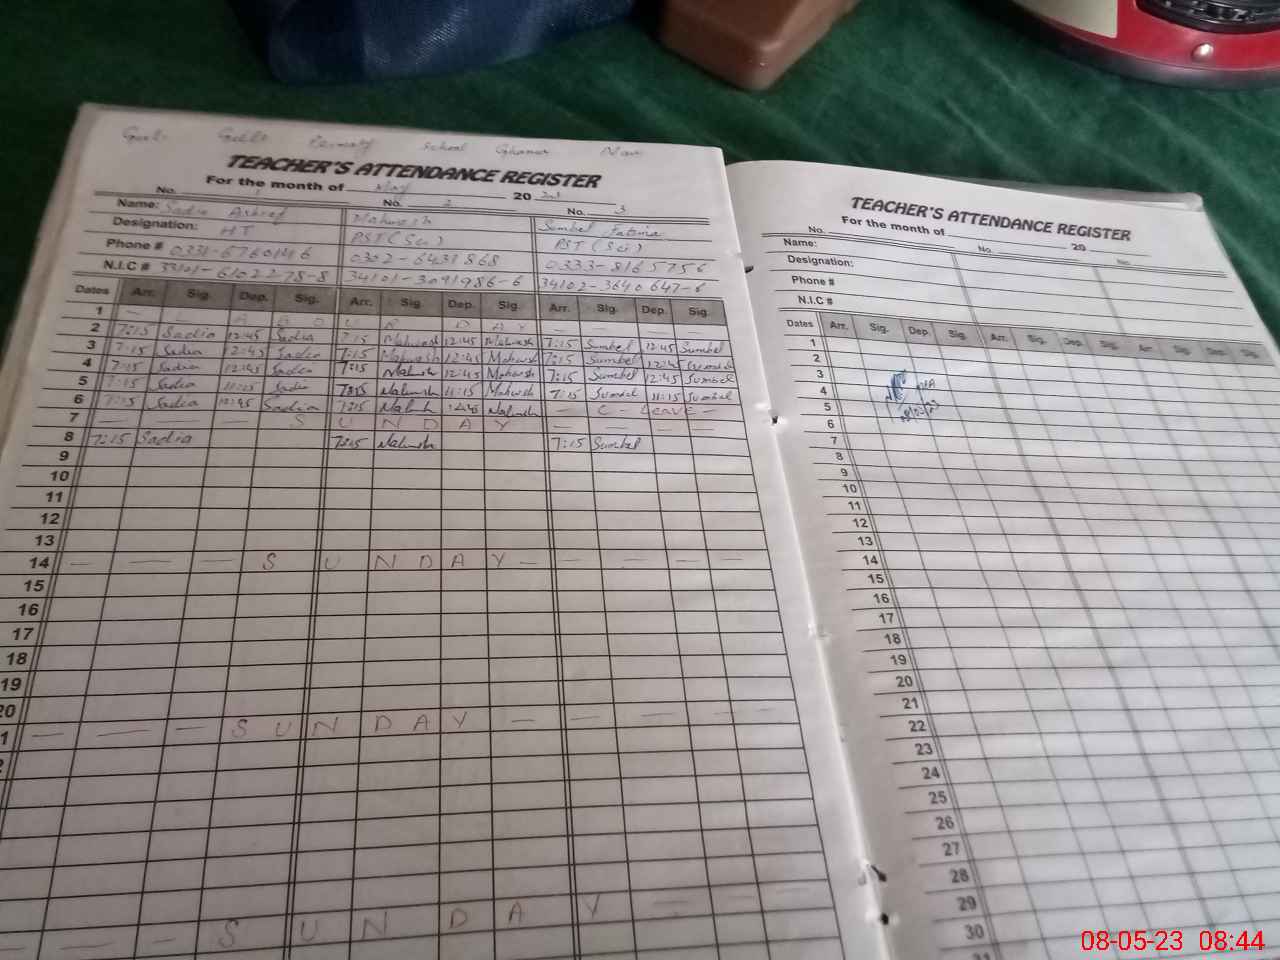 Govt. Girls Primary School Ghanour Nau
TEACHER'S ATTENDANCE REGISTER
For the month of May 20
No. 1 No. 2 No. 3
Name: Sadia Ashraf Mahwish Sumbel Fatima
Designation: HT PST (Sci) PST (Sci)
Phone # 0302-6431868 0333-8165756
N.I.C # 33101-61022 78-8 34101-3091986-6 34102-3640647-6
Dates Arr. Sig. Dep. Sig. Arr. Sig. Dep. Sig. Arr. Sig. Dep. Sig.
1 — L A B O U R D A Y — — — —
2 7:15 Sadia 12:45 Sadia 7:15 Mahwish 12:45 Mahwish 7:15 Sumbel 12:45 Sumbel
3 7:15 Sadia 12:45 Sadia 7:15 Mahwish 12:45 Mahwish 7:15 Sumbel 12:45 Sumbel
4 7:15 Sadia 12:45 Sadia 7:15 Mahwish 12:45 Mahwish 7:15 Sumbel 12:45 Sumbel
5 7:15 Sadia 11:15 Sadia 7:15 Mahwish 11:15 Mahwish 7:15 Sumbel 11:15 Sumbel
6 7:15 Sadia 12:45 Sadia 7:15 Mahwish 12:45 Mahwish — C - Leave —
7 — — — S U N D A Y — — — —
8 7:15 Sadia 7:15 Mahwish 7:15 Sumbel
9
10
11
12
13
14 — — — S U N D A Y — — — — —
15
16
17
18
19
20
1 — — — S U N D A Y — — — — —
2
— — — S U N D A Y — —
TEACHER'S ATTENDANCE REGISTER
For the month of 20
No. No. No.
Name:
Designation:
Phone #
N.I.C #
Dates Arr. Sig. Dep. Sig. Arr. Sig. Dep. Sig. Arr. Sig. Dep. Sig.
1
2
3
4
5
6
7
8
9
10
11
12
13
14
15
16
17
18
19
20
21
22
23
24
25
26
27
28
29
30
31
08-05-23 08:44